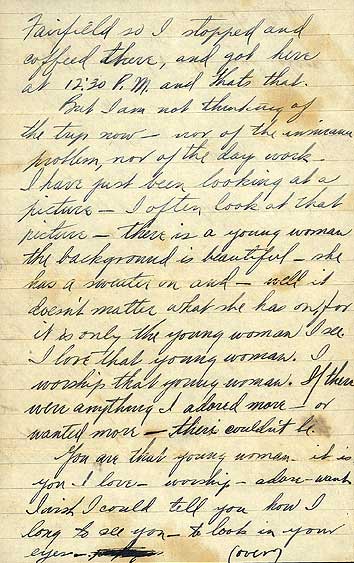 Fairfield so I stopped and
coffeed there, and got here
at 12:30 P.M. and thats that.
But I am not thinking of
the trip now — nor of the insurance
problem, nor of the day work.
I have just been looking at a
picture — I often look at that
picture — there is a young woman
the background is beautiful — she
has a sweater on and — well it
doesn't matter what she has on, for
it is only the young woman I see
I love that young woman. I
worship that young woman. If there
were anything I adored more — or
wanted more — there couldn't be.
You are that young woman — it is
you I love — worship — adore — want
I wish I could tell you how I
long to see you — to look in your
eyes —
(over)